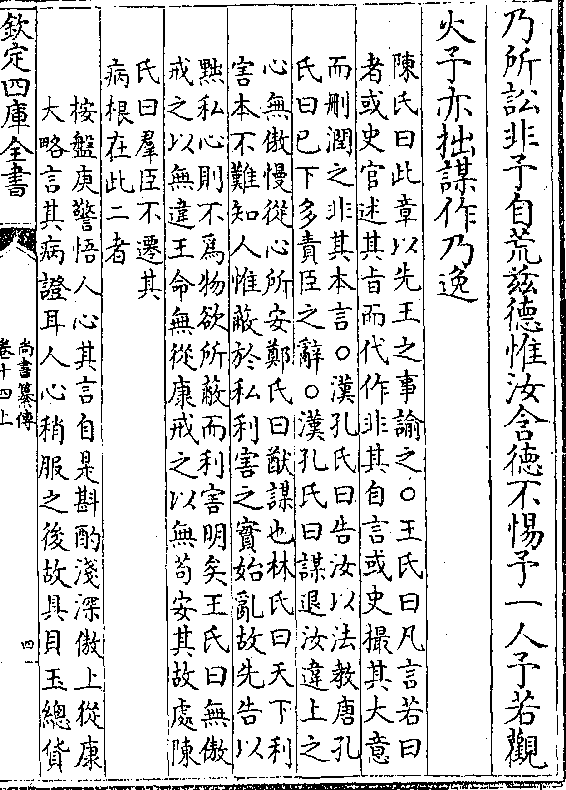 乃所訟非予自荒兹德惟汝含德不惕予一人予若觀
火予亦拙謀作乃逸
陳氏曰此章以先王之事諭之○王氏曰凡言若曰
者或史官述其㫖而代作非其自言或史撮其大意
而刪潤之非其本言○漢孔氏曰告汝以法教唐孔
氏曰已下多責臣之辭○漢孔氏曰謀退汝違上之
心無傲慢從心所安鄭氏曰猷謀也林氏曰天下利
害本不難知人惟蔽於私利害之實始亂故先告以
黜私心則不為物欲所蔽而利害明矣王氏曰無傲
戒之以無違王命無從康戒之以無苟安其故處陳
氏曰羣臣不遷其
病根在此二者
桉盤庚警悟人心其言自是斟酌淺深傲上從康
大略言其病證耳人心稍服之後故具貝玉總貨
欽定四庫全書
尚書纂傳
卷十四上
四